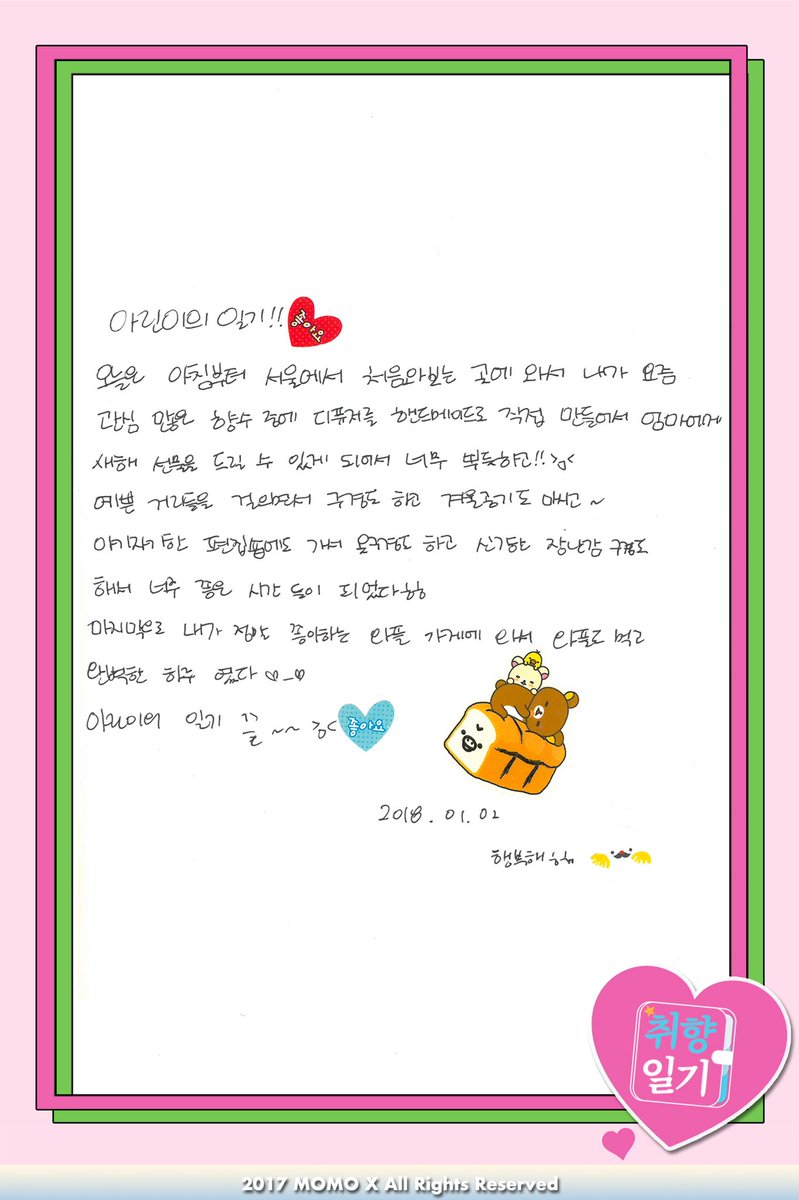 아린이의 일기!! 좋아요
오늘은 아침부터 서울에서 처음와보는 곳에 와서 내가 요즘
관심 많은 향수 중에 디퓨저를 핸드메이드로 직접 만들어서 엄마에게
새해 선물을 드릴 수 있게 되어서 너무 뿌듯하고!! >_<
예쁜 거리들을 걸으면서 구경도 하고 겨울공기도 마시고~
아기자기한 편집숍에도 가서 옷구경도 하고 신기한 장난감 구경도
해서 너무 좋은 시간 들이 되었다ㅎㅎ
마지막으로 내가 정말 좋아하는 와플 가게에 와서 와플도 먹고
완벽한 하루 였다 ♡_♡
아린이의 일기 끝 ~~ 좋아요
2018.01.02
행복해
취향
일기
2017 MOMO X All Rights Reserved